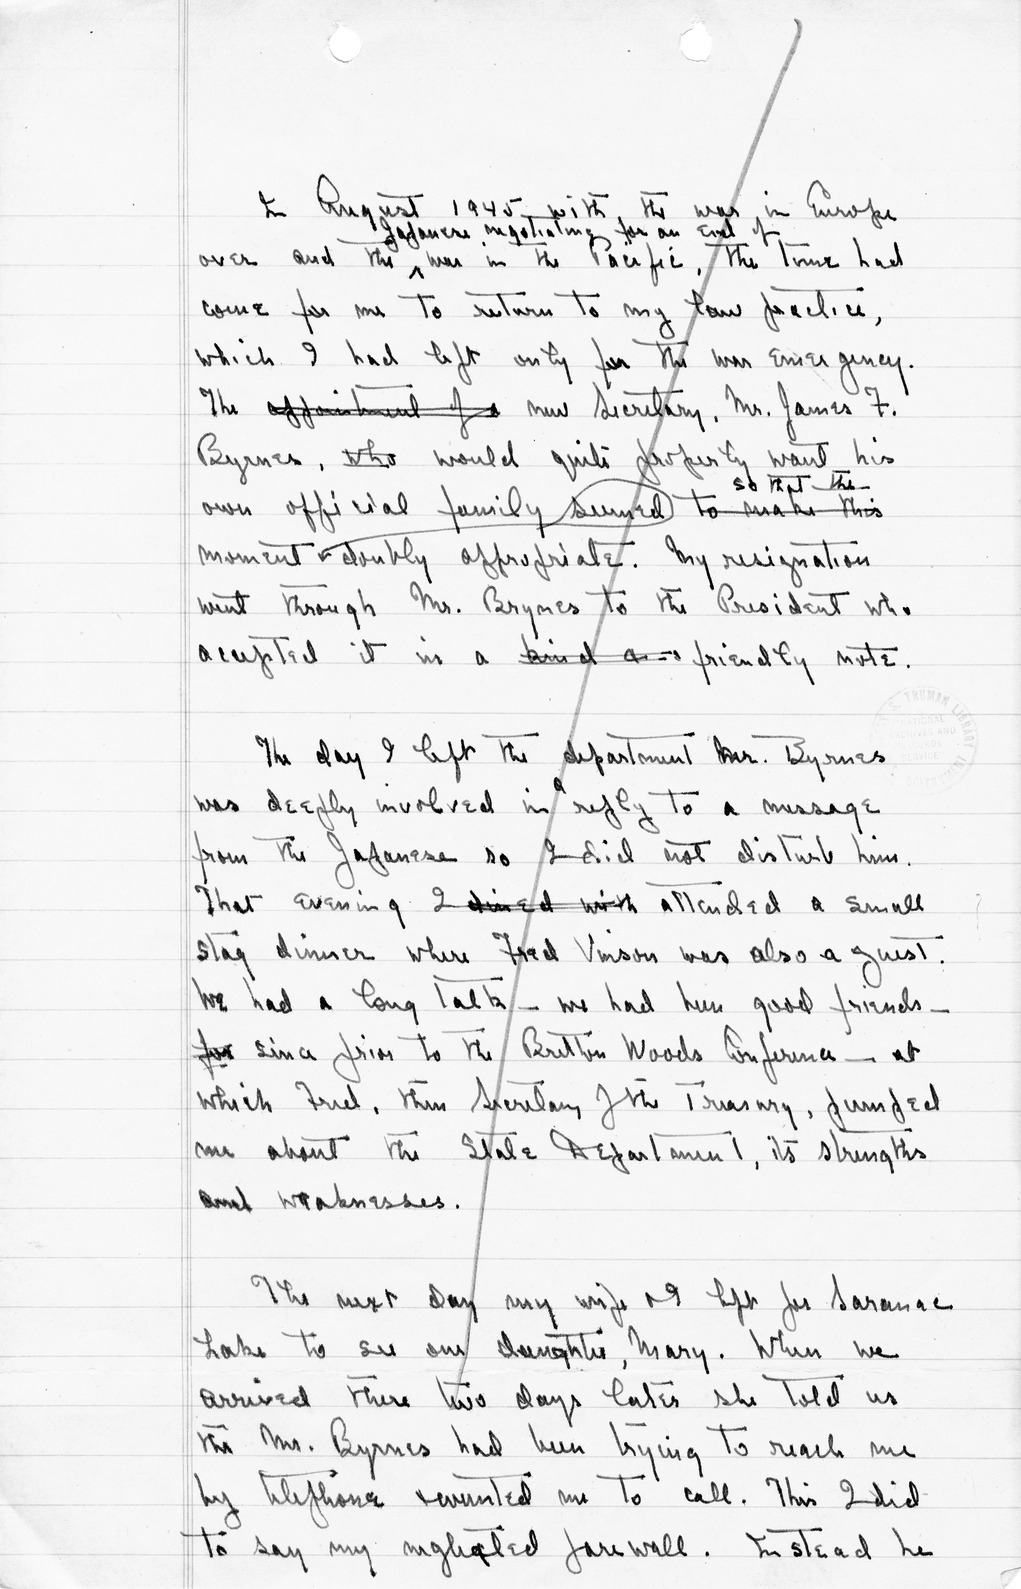 In August 1945 with the war in Europe
Japanese negotiating for an end of
over and the ^ war in the Pacific, the time had
come for me to return to my law practice,
which I had left only for the war emergency.
The appointment of a new Secretary, Mr. James F.
Byrnes, who would quite properly want his
so that the
own official family seemed to make this
moment doubly appropriate. My resignation
went through Mr. Brynes to the President who
accepted it in a kind friendly note.
The day I left the department Mr. Byrnes
was deeply involved in a reply to a message
from the Japanese so I did not disturb him.
That evening I dined with attended a small
stag dinner where Fred Vinson was also a guest.
We had a long talk — we had been good friends —
for since prior to the Bretton Woods Conference — at
which Fred, then Secretary of the Treasury, pumped
me about the State Department, its strengths
and weaknesses.
The next day my wife & I left for Saranac
Lake to see our daughter, Mary. When we
arrived there two days later she told us
tha Mr. Byrnes had been trying to reach me
by telephone & wanted me to call. This I did
to say my neglected farewell. Instead he
S. TRUMAN LIBRARY
NATIONAL
ARCHIVES AND
RECORDS
SERVICE